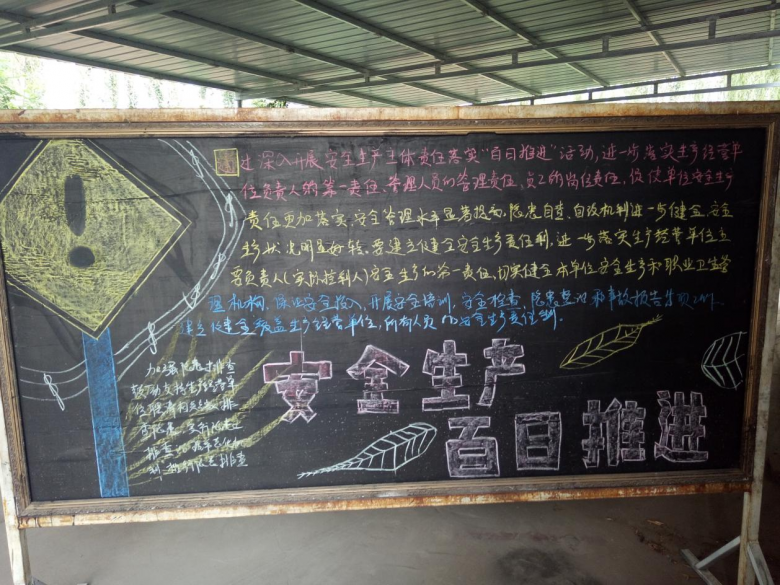 通过深入开展安全生产主体责任落实"百日推进"活动,进一步落实生产经营单
位负责人的第一责任、管理人员的管理责任、员工的岗位责任,促使单位安全生产
责任更加落实、安全管理水平显著提高、隐患自查、自改机制进一步健全、安全
生产状况明显好转。要建立健全安全生产责任制,进一步落实生产经营单位主
要负责人(实际控制人)安全生产的第一责任,切实健全本单位安全生产和职业卫生管
理机构、保证安全投入、开展安全培训、安全检查、隐患整改和事故报告等项工作。
建立健全覆盖生产经营单位、所有人员的安全生产责任制。
加强隐患排查
鼓励支持生产经营单
排查
安全生产
百日推进